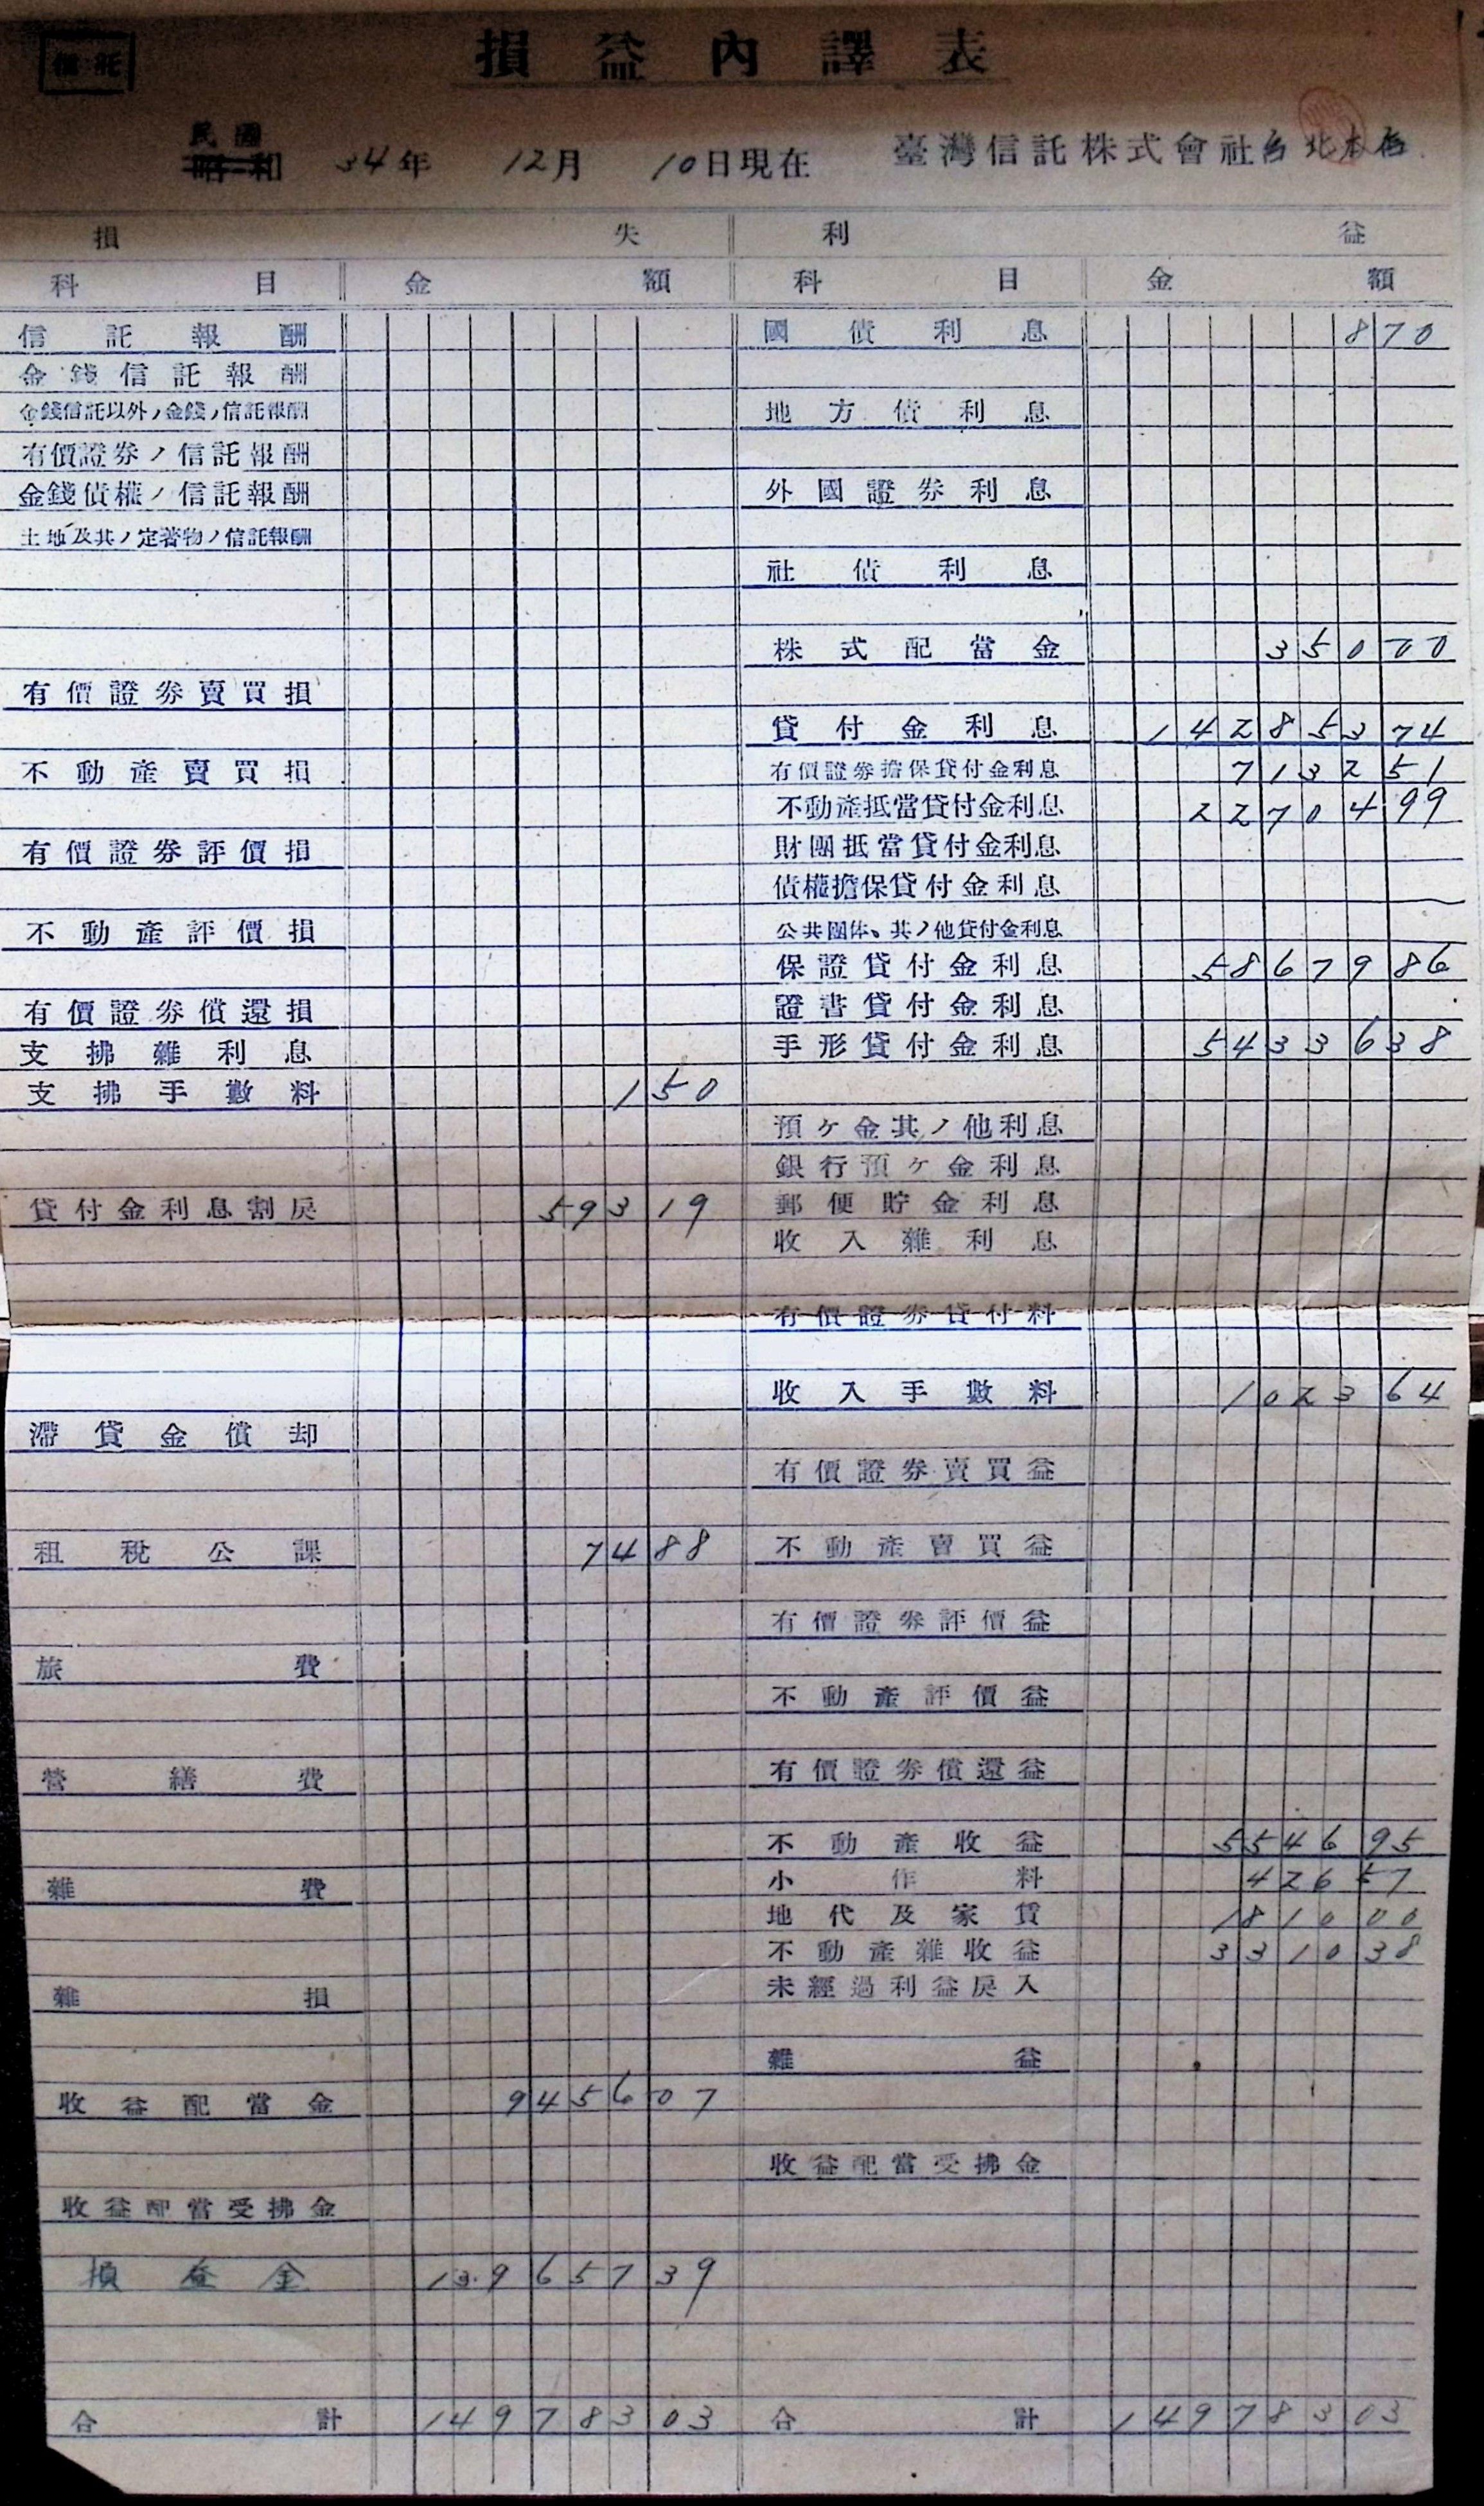 信託
損益內譯表
民國
昭和 34年 12月 10日現在 臺灣信託株式會社台北本店
損失 利益
科目 金額 科目 金額
信託報酬 國債利息 870
金錢信託報酬
金錢信託以外ノ金錢ノ信託報酬 地方債利息
有價證券ノ信託報酬
金錢債權ノ信託報酬 外國證券利息
土地及其ノ定著物ノ信託報酬
社債利息
株式配當金 35000
有價證券賣買損
貸付金利息 14285374
不動產賣買損 有價證券擔保貸付金利息 713251
不動產抵當貸付金利息 2270499
有價證券評價損 財團抵當貸付金利息
債權擔保貸付金利息
不動產評價損 公共團体、其ノ他貸付金利息
保證貸付金利息 5867986
有價證券償還損 證書貸付金利息
支拂雜利息 手形貸付金利息 5433638
支拂手數料 150
預ケ金其ノ他利息
銀行預ケ金利息
貸付金利息割戾 59319 郵便貯金利息
收入雜利息
有價證券貸付料
收入手數料 102364
滯貸金償却
有價證券賣買益
租稅公課 7488 不動產賣買益
有價證券評價益
旅費
不動產評價益
營繕費 有價證券償還益
不動產收益 554695
雜費 小作料 42657
地代及家賃 181000
不動產雜收益 331038
雜損 未經過利益戾入
雜益
收益配當金 945607
收益配當受拂金
收益配當受拂金
損益金 13965739
合計 14978303 合計 14978303